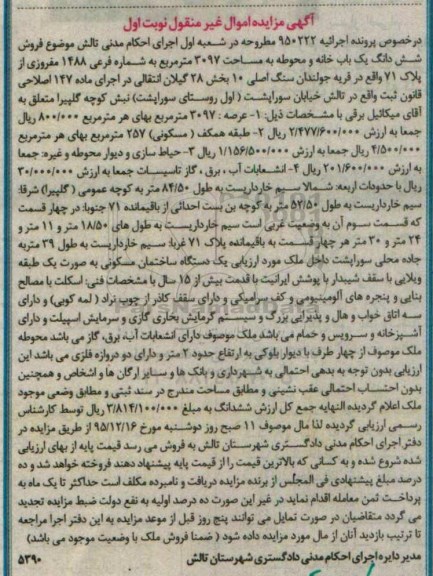 آگهی مزایده اموال غیر منقول نوبت اول
درخصوص پرونده اجرائیه ۹۵۰۲۲۲ مطروحه در شعبه اول اجرای احکام مدنی تالش موضوع فروش
شش دانگ یک باب خانه و محوطه به مساحت ۳۰۹۷ مترمربع به شماره فرعی ۱۴۸۸ مفروزی از
پلاک ۷۱ واقع در قریه جولندان سنگ اصلی ۱۰ بخش ۲۸ گیلان انتقالی در اجرای ماده ۱۴۷ اصلاحی
قانون ثبت واقع در تالش خیابان سوراپشت ( اول روستای سوراپشت) نبش کوچه گلپیرا متعلق به
آقای میکائیل برقی با مشخصات ذیل: ۱- عرصه : ۳۰۹۷ مترمربع بهای هر مترمربع ۸۰۰/۰۰۰ ریال
جمعا به ارزش ۲/۴۷۷/۶۰۰/۰۰۰ ریال ۲- طبقه همکف ( مسکونی) ۲۵۷ مترمربع بهای هر مترمربع
۴/۵۰۰/۰۰۰ ریال جمعا به ارزش ۱/۱۵۶/۵۰۰/۰۰۰ ریال ۳- حیاط سازی و دیوار محوطه و غیره: جمعا
به ارزش ۲۰۱/۶۰۰/۰۰۰ ریال ۴- انشعابات آب ، برق ، گاز تاسیسات جمعا به ارزش ۳۰/۰۰۰/۰۰۰
ریال با حدودات اربعه: شمالا سیم خارداریست به طول ۸۴/۵۰ متر به کوچه عمومی ( گلپیرا) شرقا:
سیم خارداریست به طول ۵۲/۵۰ متر به کوچه بن بست احداثی از باقیمانده ۷۱ جنوبا: در چهار قسمت
که قسمت سوم آن به وضعیت غربی است سیم خارداریست به طول های ۱۸/۵۰ متر و ۱۱ متر و
۲۴ متر و ۳۰ متر هر چهار قسمت به باقیمانده پلاک ۷۱ غربا: سیم خارداریست به طول ۳۹ متربه
جاده محلی سوراپشت داخل ملک مورد ارزیابی یک دستگاه ساختمان مسکونی به صورت یک طبقه
ویلایی با سقف شیبدار با پوشش ایرانیت با قدمت بیش از ۱۵ سال با مشخصات فنی: اسکلت با مصالح
بنایی و پنجره های آلومینیومی و کف سرامیکی و دارای سقف کاذر از چوب نراد ( لمه کوبی) و دارای
سه اتاق خواب و هال و پذیرایی بزرگ و سیستم گرمایش بخاری گازی و سرمایش اسپیلت و دارای
آشپزخانه و سرویس و حمام می باشد ملک موصوف دارای انشعابات آب، برق، گاز می باشد محوطه
ملک موصوف از چهار طرف با دیوار بلوکی به ارتفاع حدود ۲ متر و دارای دو دروازه فلزی می باشد این
ارزیابی بدون توجه به بدهی احتمالی به شهرداری و بانک ها و سایر ارگان ها و اشخاص و همچنین
بدون احتساب احتمالی عقب نشینی و مطابق مساحت مندرج در سند ثبتی و مطابق وضعی موجود
ملک اعلام گردیده النهایه جمع کل ارزش ششدانگ به مبلغ ۳/۸۱۴/۱۰۰/۰۰۰ ریال توسط کارشناس
رسمی ارزیابی گردیده لذا مال موصوف ۱۱ صبح روز دوشنبه مورخ ۹۵/۱۲/۱۶ از طریق مزایده در
دفتر اجرای احکام مدنی دادگستری شهرستان تالش به فروش می رسد قیمت پایه از بهای ارزیابی
شده شروع شده و به کسانی که بالاترین قیمت را از قیمت پایه پیشنهاد دهند فروخته خواهد شد و ده
درصد مبلغ پیشنهادی فی المجلس از برنده مزایده دریافت و نامبرده مکلف است حداکثر تا یک ماه به
پرداخت ثمن معامله اقدام نماید در غیر این صورت ده درصد اولیه به نفع دولت ضبط مزایده تجدید
می گردد متقاضیان در صورت تمایل می توانند پنج روز قبل از موعد مزایده به این دفتر اجرا مراجعه
تا ترتیب بازدید آنان از مال مورد مزایده داده شود ( ضمنا فروش ملک با وضعیت موجود می باشد)
مدیر دایره اجرای احکام مدنی دادگستری شهرستان تالش ۵۳۹۰